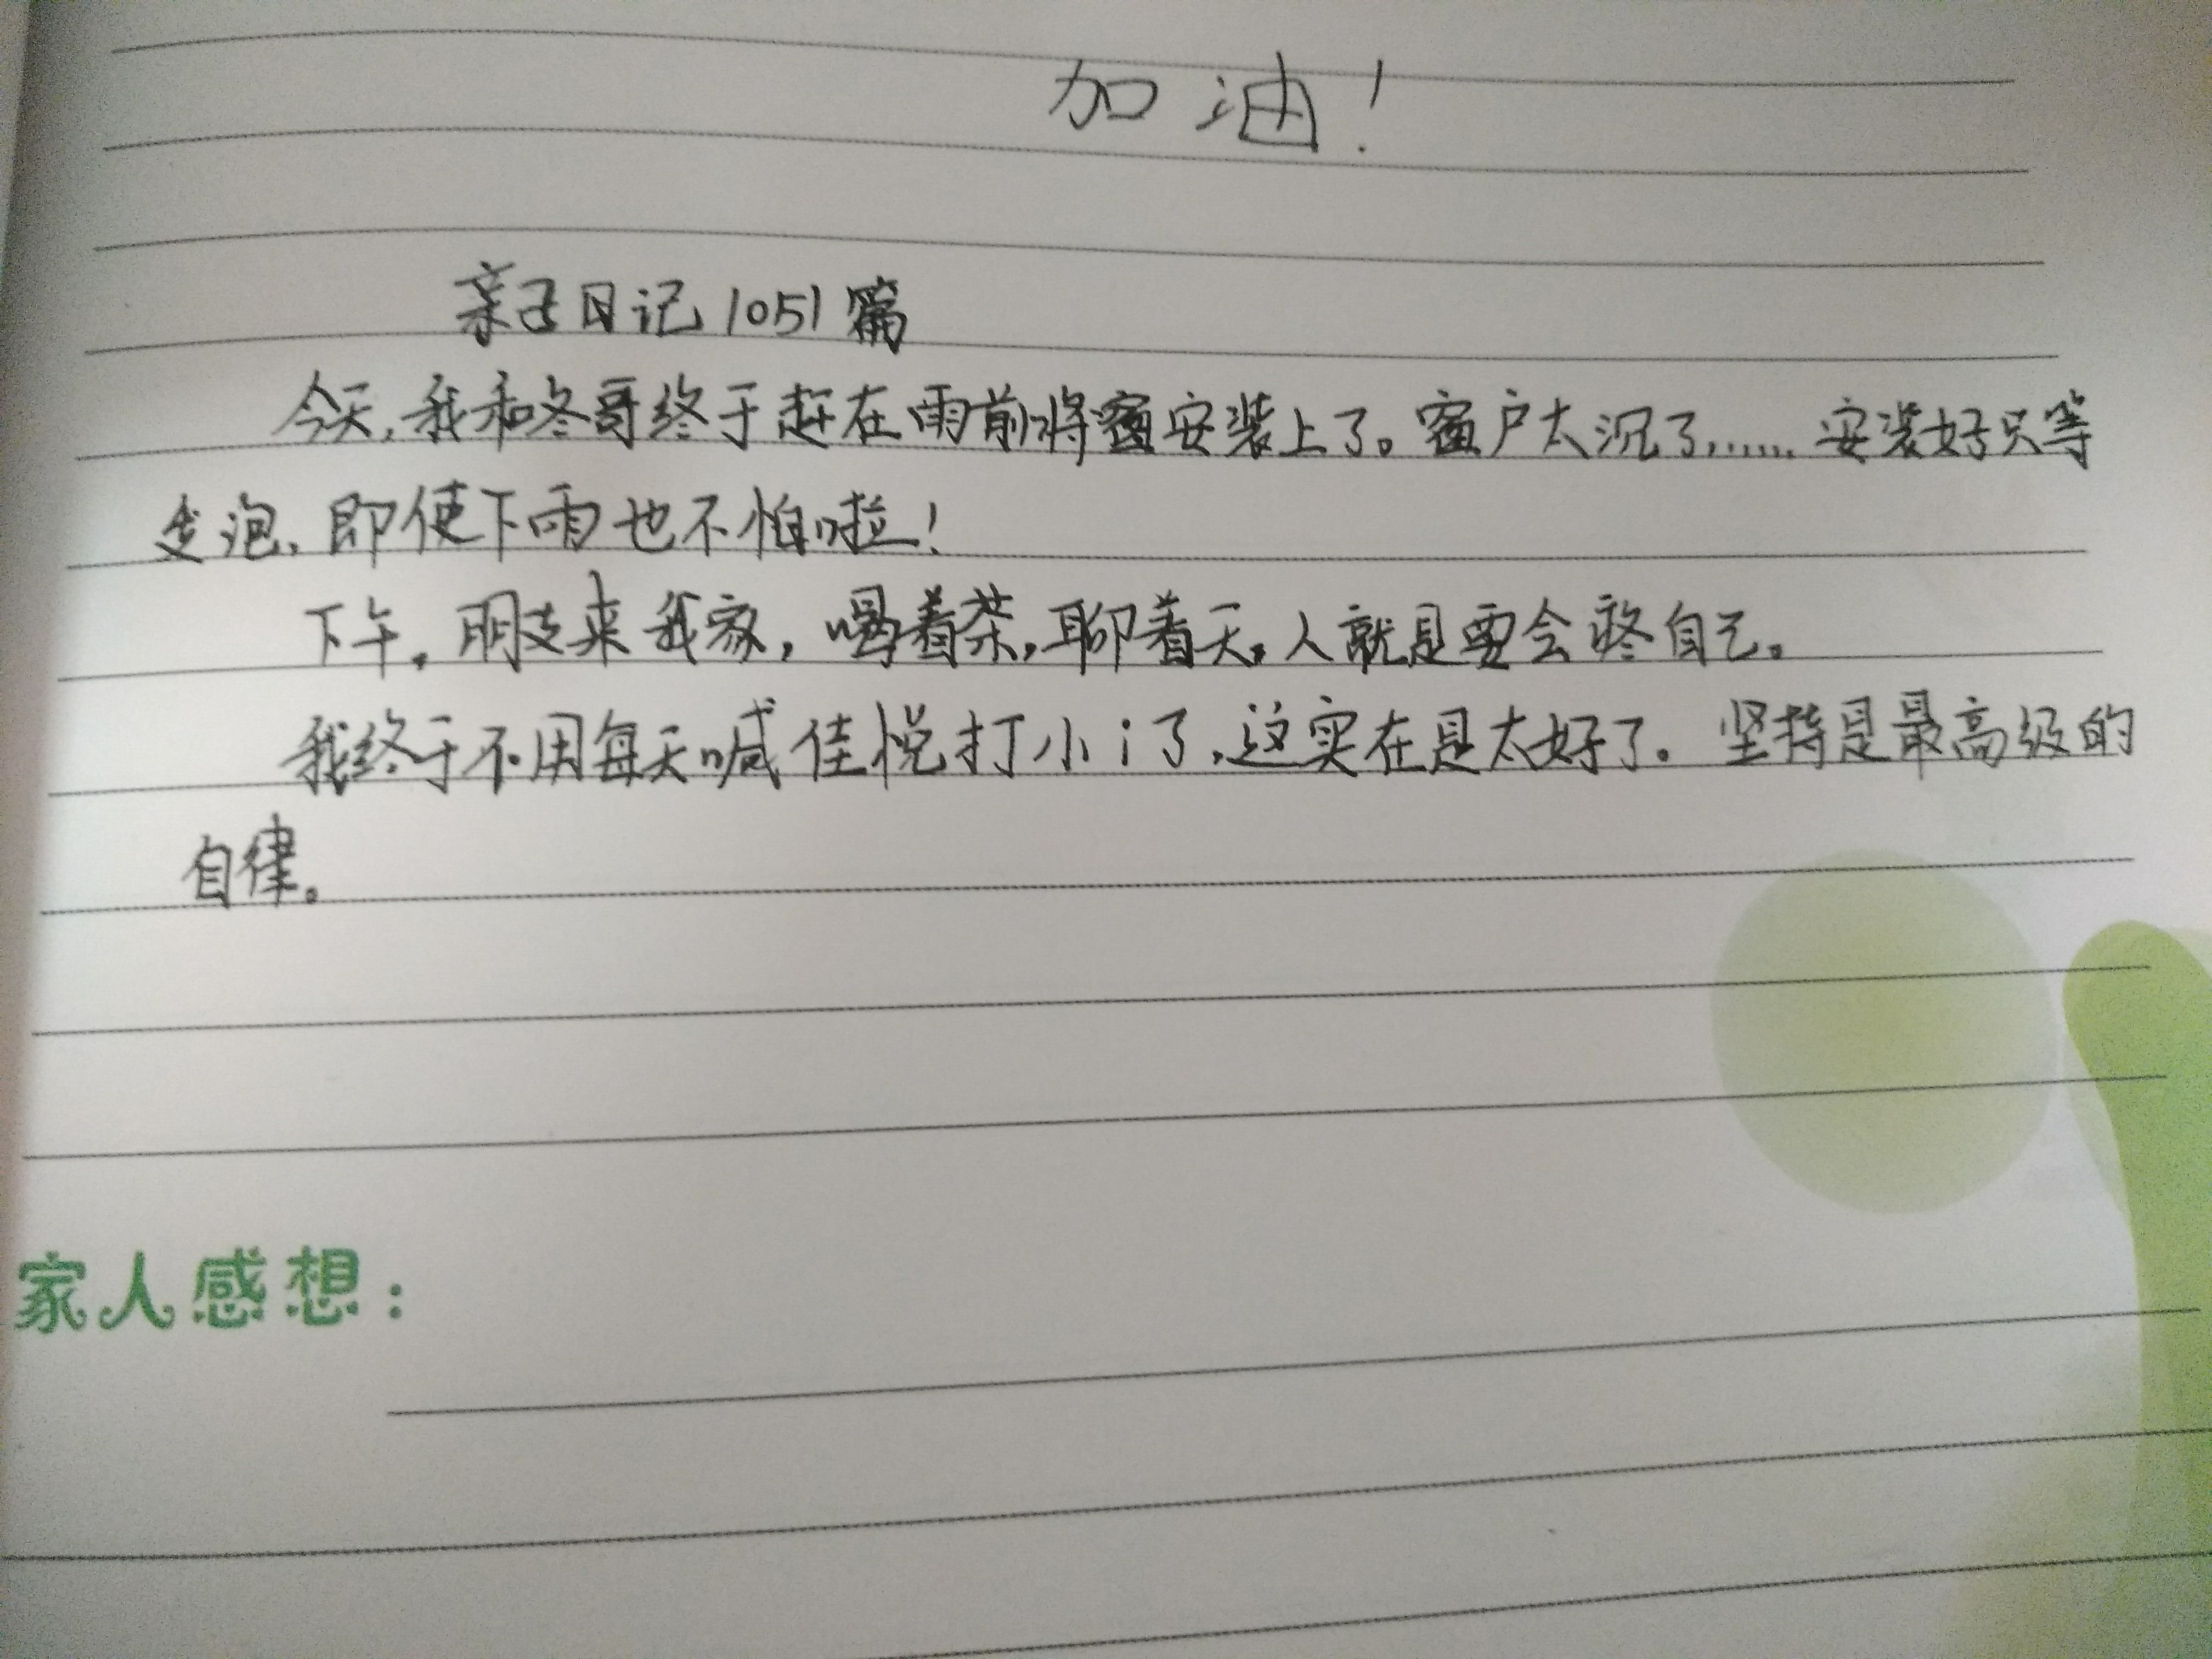 加油！
亲子日记1051篇
今天，我和冬哥终于赶在雨前将窗安装上了。窗户太沉了……安装好只等
发泡，即使下雨也不怕啦！
下午。朋友来我家，喝着茶，聊着天，人就是要会疼自己。
我终于不用每天喊佳悦打小i了，这实在是太好了。坚持是最高级的
自律。
家人感想：